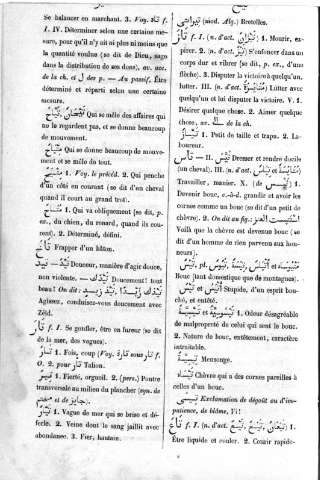 Se balancer en marchant. 3. Voy. تاز f.
I. IV. Déterminer selon une certaine me-
sure, pour qu'il n'y ait ni plus ni moins que
la quantité voulue (se dit de Dieu, sage
dans la distribution de son don), av. acc.
de la ch. et ل des p. — Au passif, Être
déterminé et réparti selon une certaine
mesure.
Qui se mêle des affaires qui
ne le regardent pas, et se donne beaucoup
de mouvement.
Qui se donne beaucoup de mouve-
ment et se mêle de tout.
1. Voy. le précéd. 2. Qui penche
d'un côté en courant (se dit d'un cheval
quand il court au grand trot).
1. Qui va obliquement (se dit, p.
ex., du chien, du renard, quand ils cou-
rent). 2. Déterminé, défini.
Frapper d'un bâton.
Douceur, manière d'agir douce,
non violente. — Doucement! tout
beau! On dit :
Agissez, conduisez-vous doucement avec
Zéïd.
f. I. Se gonfler, être en fureur (se dit
de la mer, des vagues).
1. Fois, coup (Voy. تارة sous تار f.
O. 2. pour Talion.
1. Fierté, orgueil. 2. (pers.) Poutre
transversale au milieu du plancher (syn. de
1. Vague de mer qui se brise et dé-
ferle. 2. Veine dont le sang jaillit avec
abondance. 3. Fier, hautain.
(mod. Alg.) Bretelles.
f. I. (n. d'act. 1. Mourir, ex-
pirer. 2. (n. d'act. S'enfoncer dans un
corps dur et vibrer (se dit, p. ex., d'une
flèche). 3. Disputer la victoire à quelqu'un,
lutter. III. (n. d'act. Lutter avec
quelqu'un et lui disputer la victoire. V. 1.
Désirer quelque chose. 2. Aimer quelque
chose, av. de la ch.
1. Petit de taille et trapu. 2. La-
boureur.
— II. Dresser et rendre docile
(un cheval). III. (n. d'act.
Travailler, manier. X. (de تيس) 1.
Devenir bouc, c.-à-d. grandir et avoir les
cornes comme un bouc (se dit d'un petit de
chèvre). 2. On dit au fig.: استتيست العنز
Voilà que la chèvre est devenue bouc (se
dit d'un homme de rien parvenu aux hon-
neurs).
Bouc (tant domestique que de montagnes).
Stupide, d'un esprit bou-
ché, et entêté.
1. Odeur désagréable
de malpropreté de celui qui sent le bouc.
2. Nature de bouc, entêtement, caractère
intraitable.
Mensonge.
Chèvre qui a des cornes pareilles à
celles d'un bouc.
Exclamation de dégoût ou d'im-
patience, de blâme, Fi!
f. I. (n. d'act. 1.
Être liquide et couler. 2. Courir rapide-